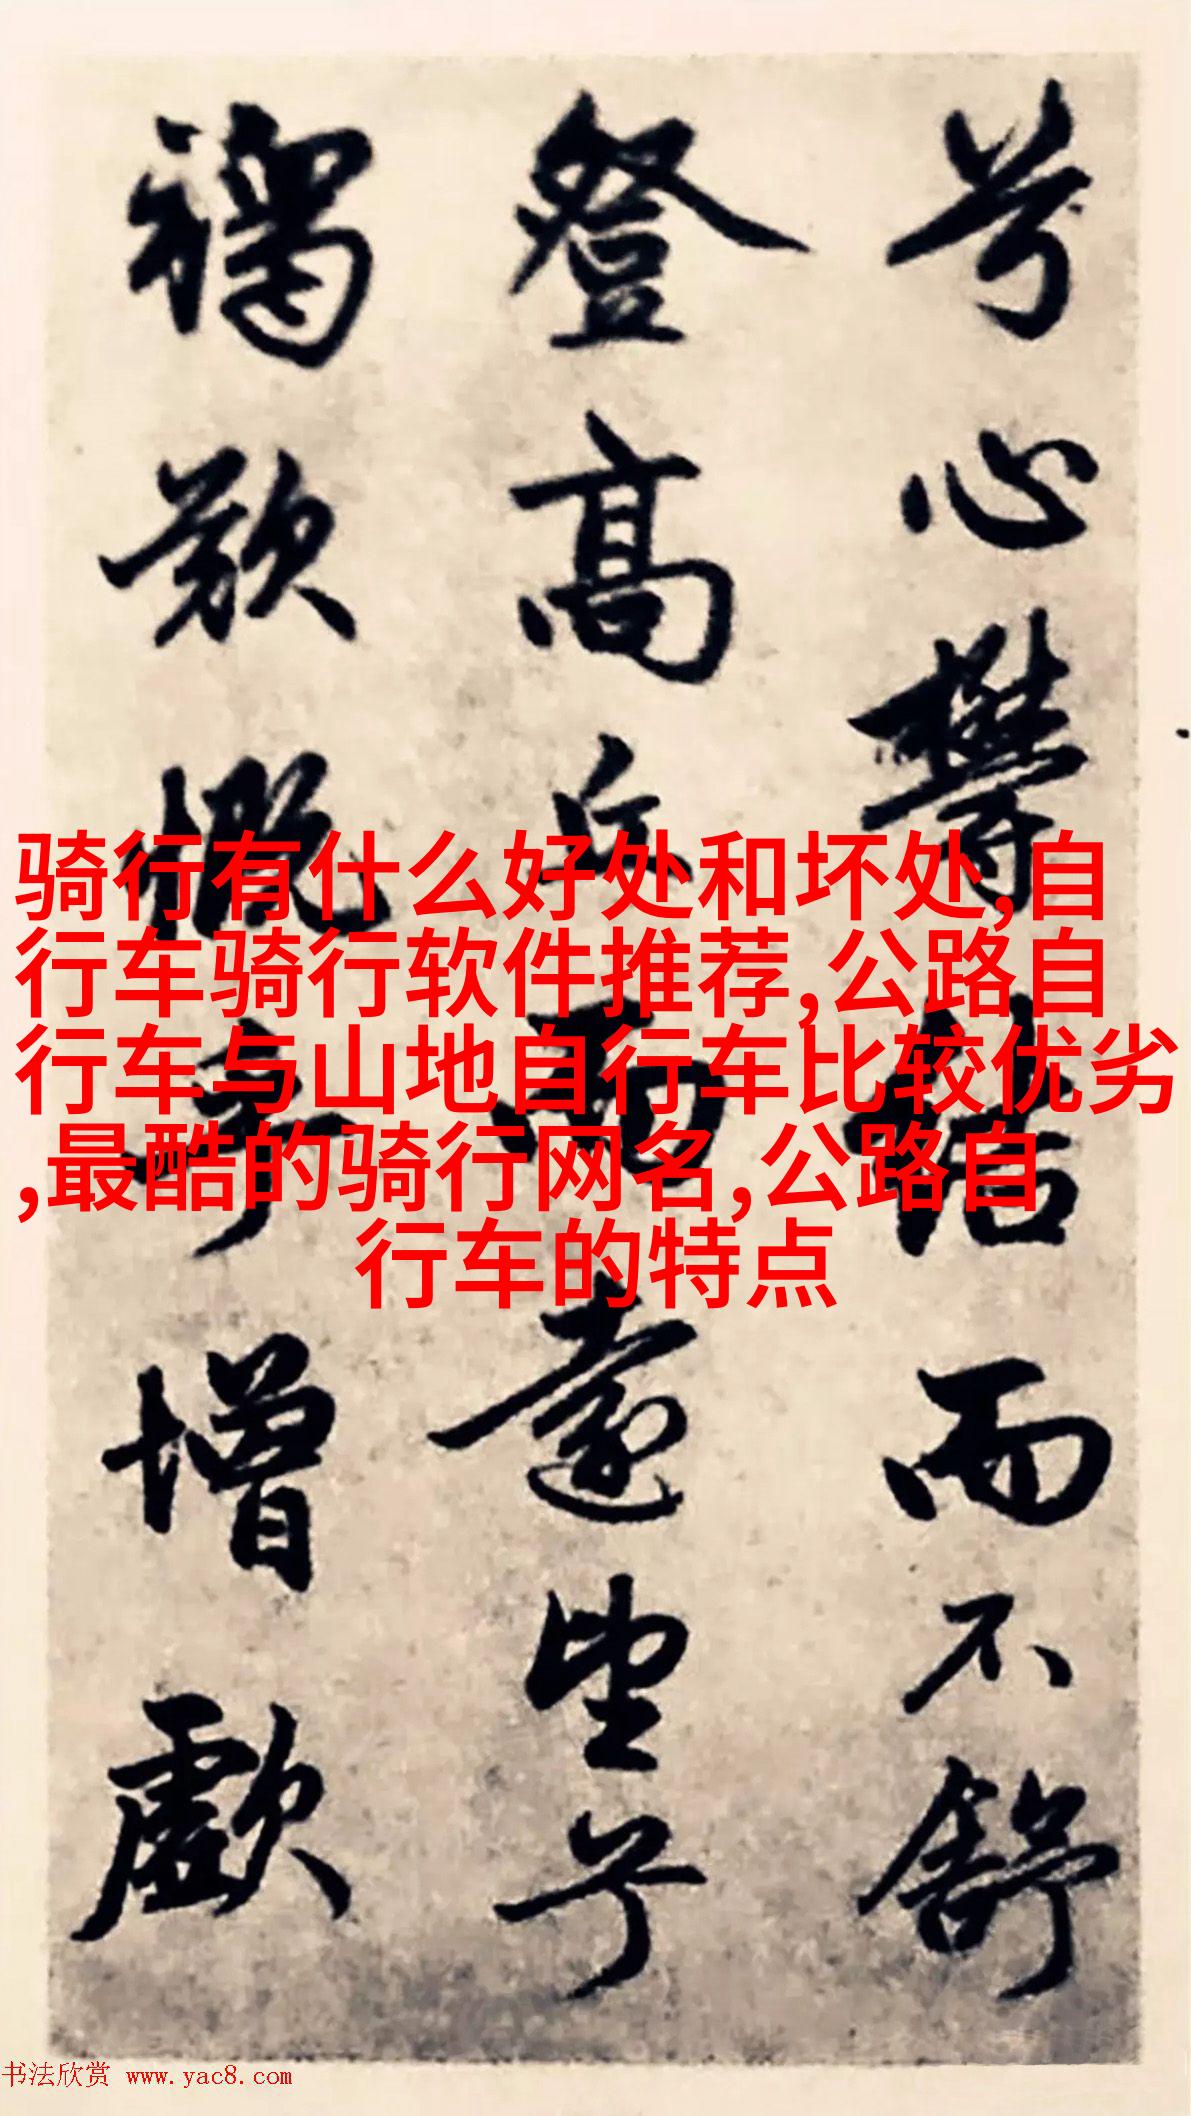 兮心欝結而不舒
登高丘而遠望兮
慨乎增歔
骑行有什么好处和坏处,自
行车骑行软件推荐,公路自
行车与山地自行车比较优劣
,最酷的骑行网名,公路自
行车的特点
书法欣赏 www.yac8.com